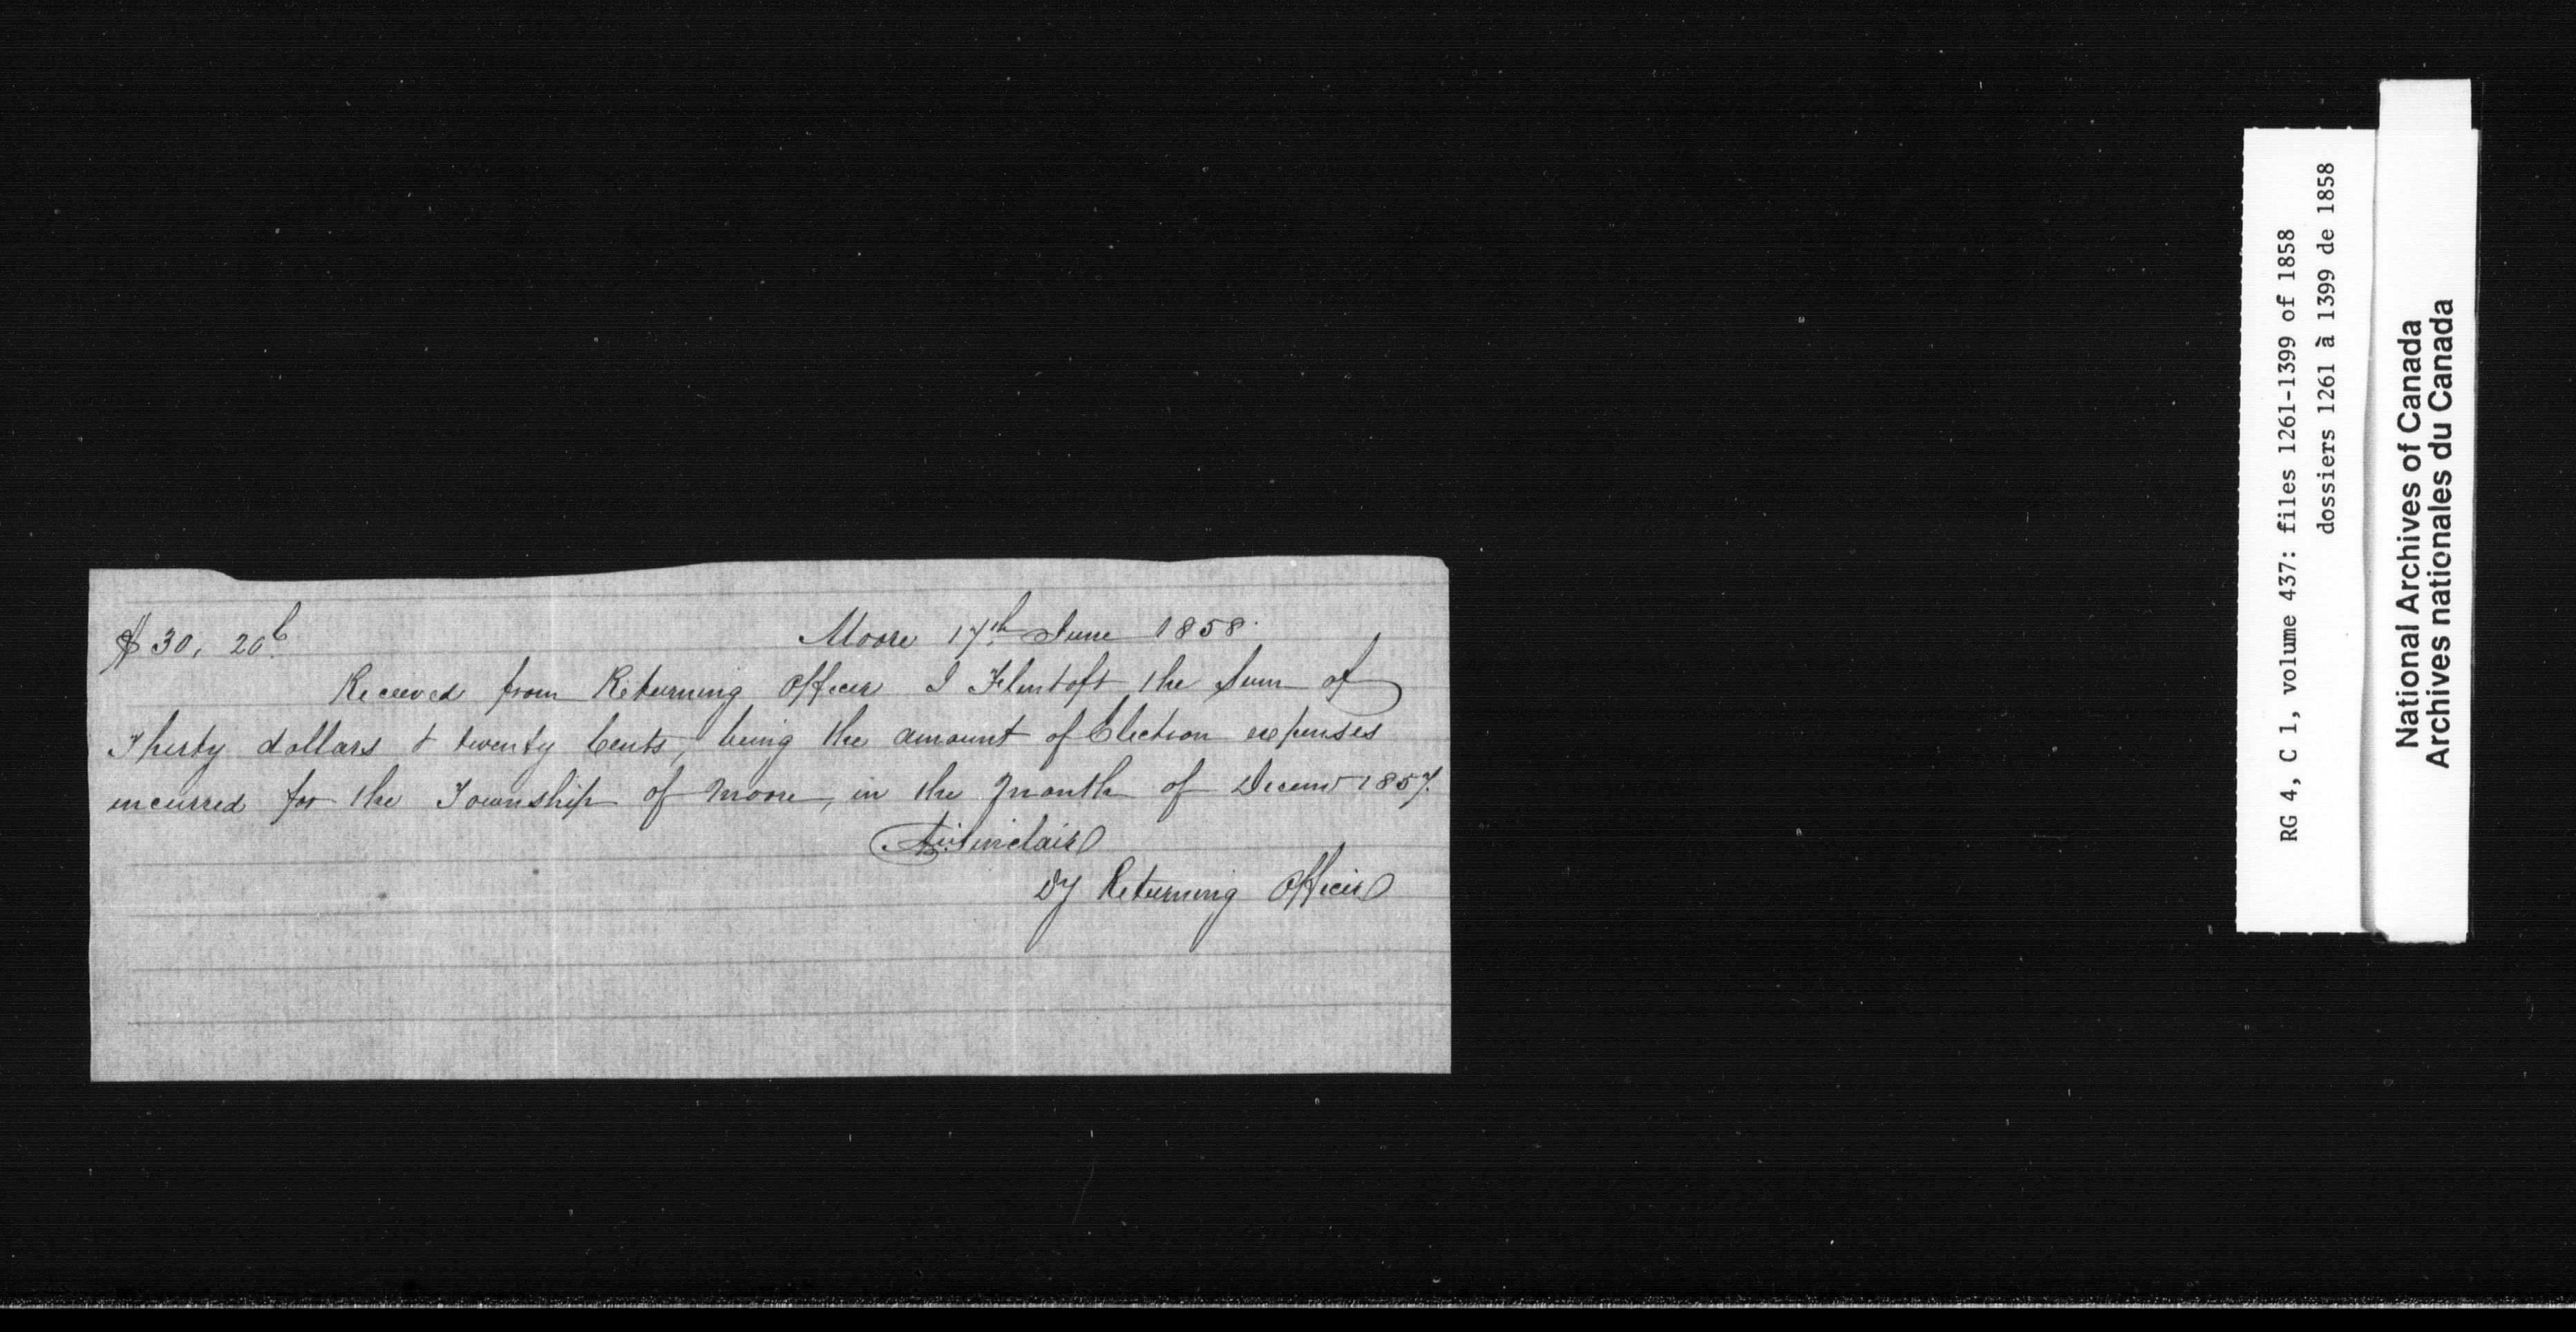 $30, 20c. Moore 17th June 1858.
Received from Returning Officer J Flintoft the Sum of
Thirty dollars & twenty Cents, being the amount of Election expenses
incurred for the Township of Moore, in the Month of Decemr 1857.
Sinclair
Dy Returning Officer
RG 4, C 1, volume 437: files 1261-1399 of 1858
dossiers 1261 à 1399 de 1858
National Archives of Canada
Archives nationales du Canada